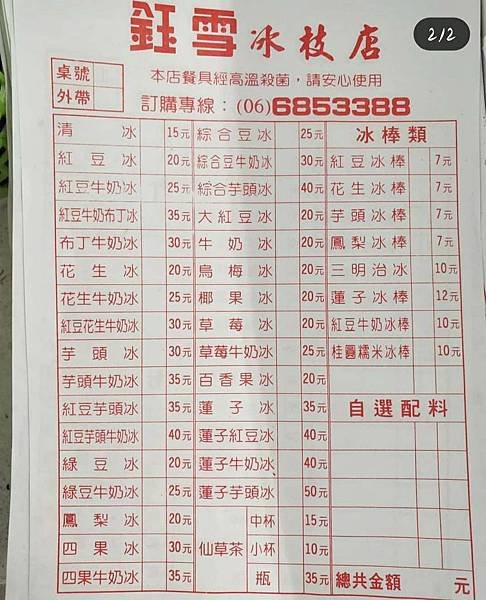 2/2
鈺雪冰枝店
桌號
外帶
本店餐具經高溫殺菌,請安心使用
訂購專線:(06)6853388
清冰 15元 綜合豆冰 25元 冰棒類
紅豆冰 20元 綜合豆牛奶冰 30元 紅豆冰棒 7元
紅豆牛奶冰 25元 綜合芋頭冰 40元 花生冰棒 7元
紅豆牛奶布丁冰 35元 大紅豆冰 20元 芋頭冰棒 7元
布丁牛奶冰 30元 牛奶冰 20元 鳳梨冰棒 7元
花生冰 20元 烏梅冰 20元 三明治冰 10元
花生牛奶冰 25元 椰果冰 20元 蓮子冰棒 12元
紅豆花生牛奶冰 30元 草莓冰 20元 紅豆牛奶冰棒 10元
芋頭冰 30元 草莓牛奶冰 25元 桂圓糯米冰棒 10元
芋頭牛奶冰 35元 百香果冰 20元
紅豆芋頭冰 35元 蓮子冰 35元 自選配料
紅豆芋頭牛奶冰 40元 蓮子紅豆冰 40元
綠豆冰 20元 蓮子牛奶冰 40元
綠豆牛奶冰 25元 蓮子芋頭冰 50元
鳳梨冰 20元 仙草茶 中杯 15元
四果冰 30元 小杯 10元
四果牛奶冰 35元 瓶 35元 總共金額 元